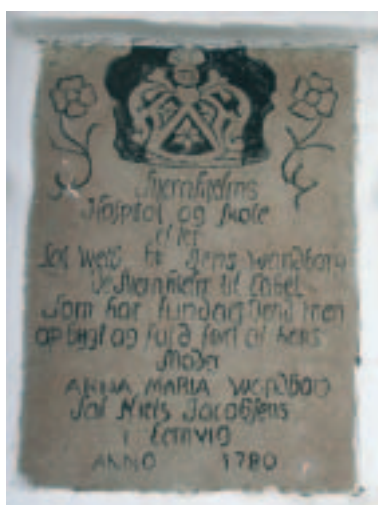 Stiernhielms
Hospital og Skole
efter
Sal Welb. Hr. Jens Wandborg
de Stiernhielm til Enbel
Som har funderet Dend men
opbÿgt og fuld fort af hens
Moder
ANNA MARIA WORDBORG
Sal Niels Jacobsens
i Lemvig
ANNO 1780